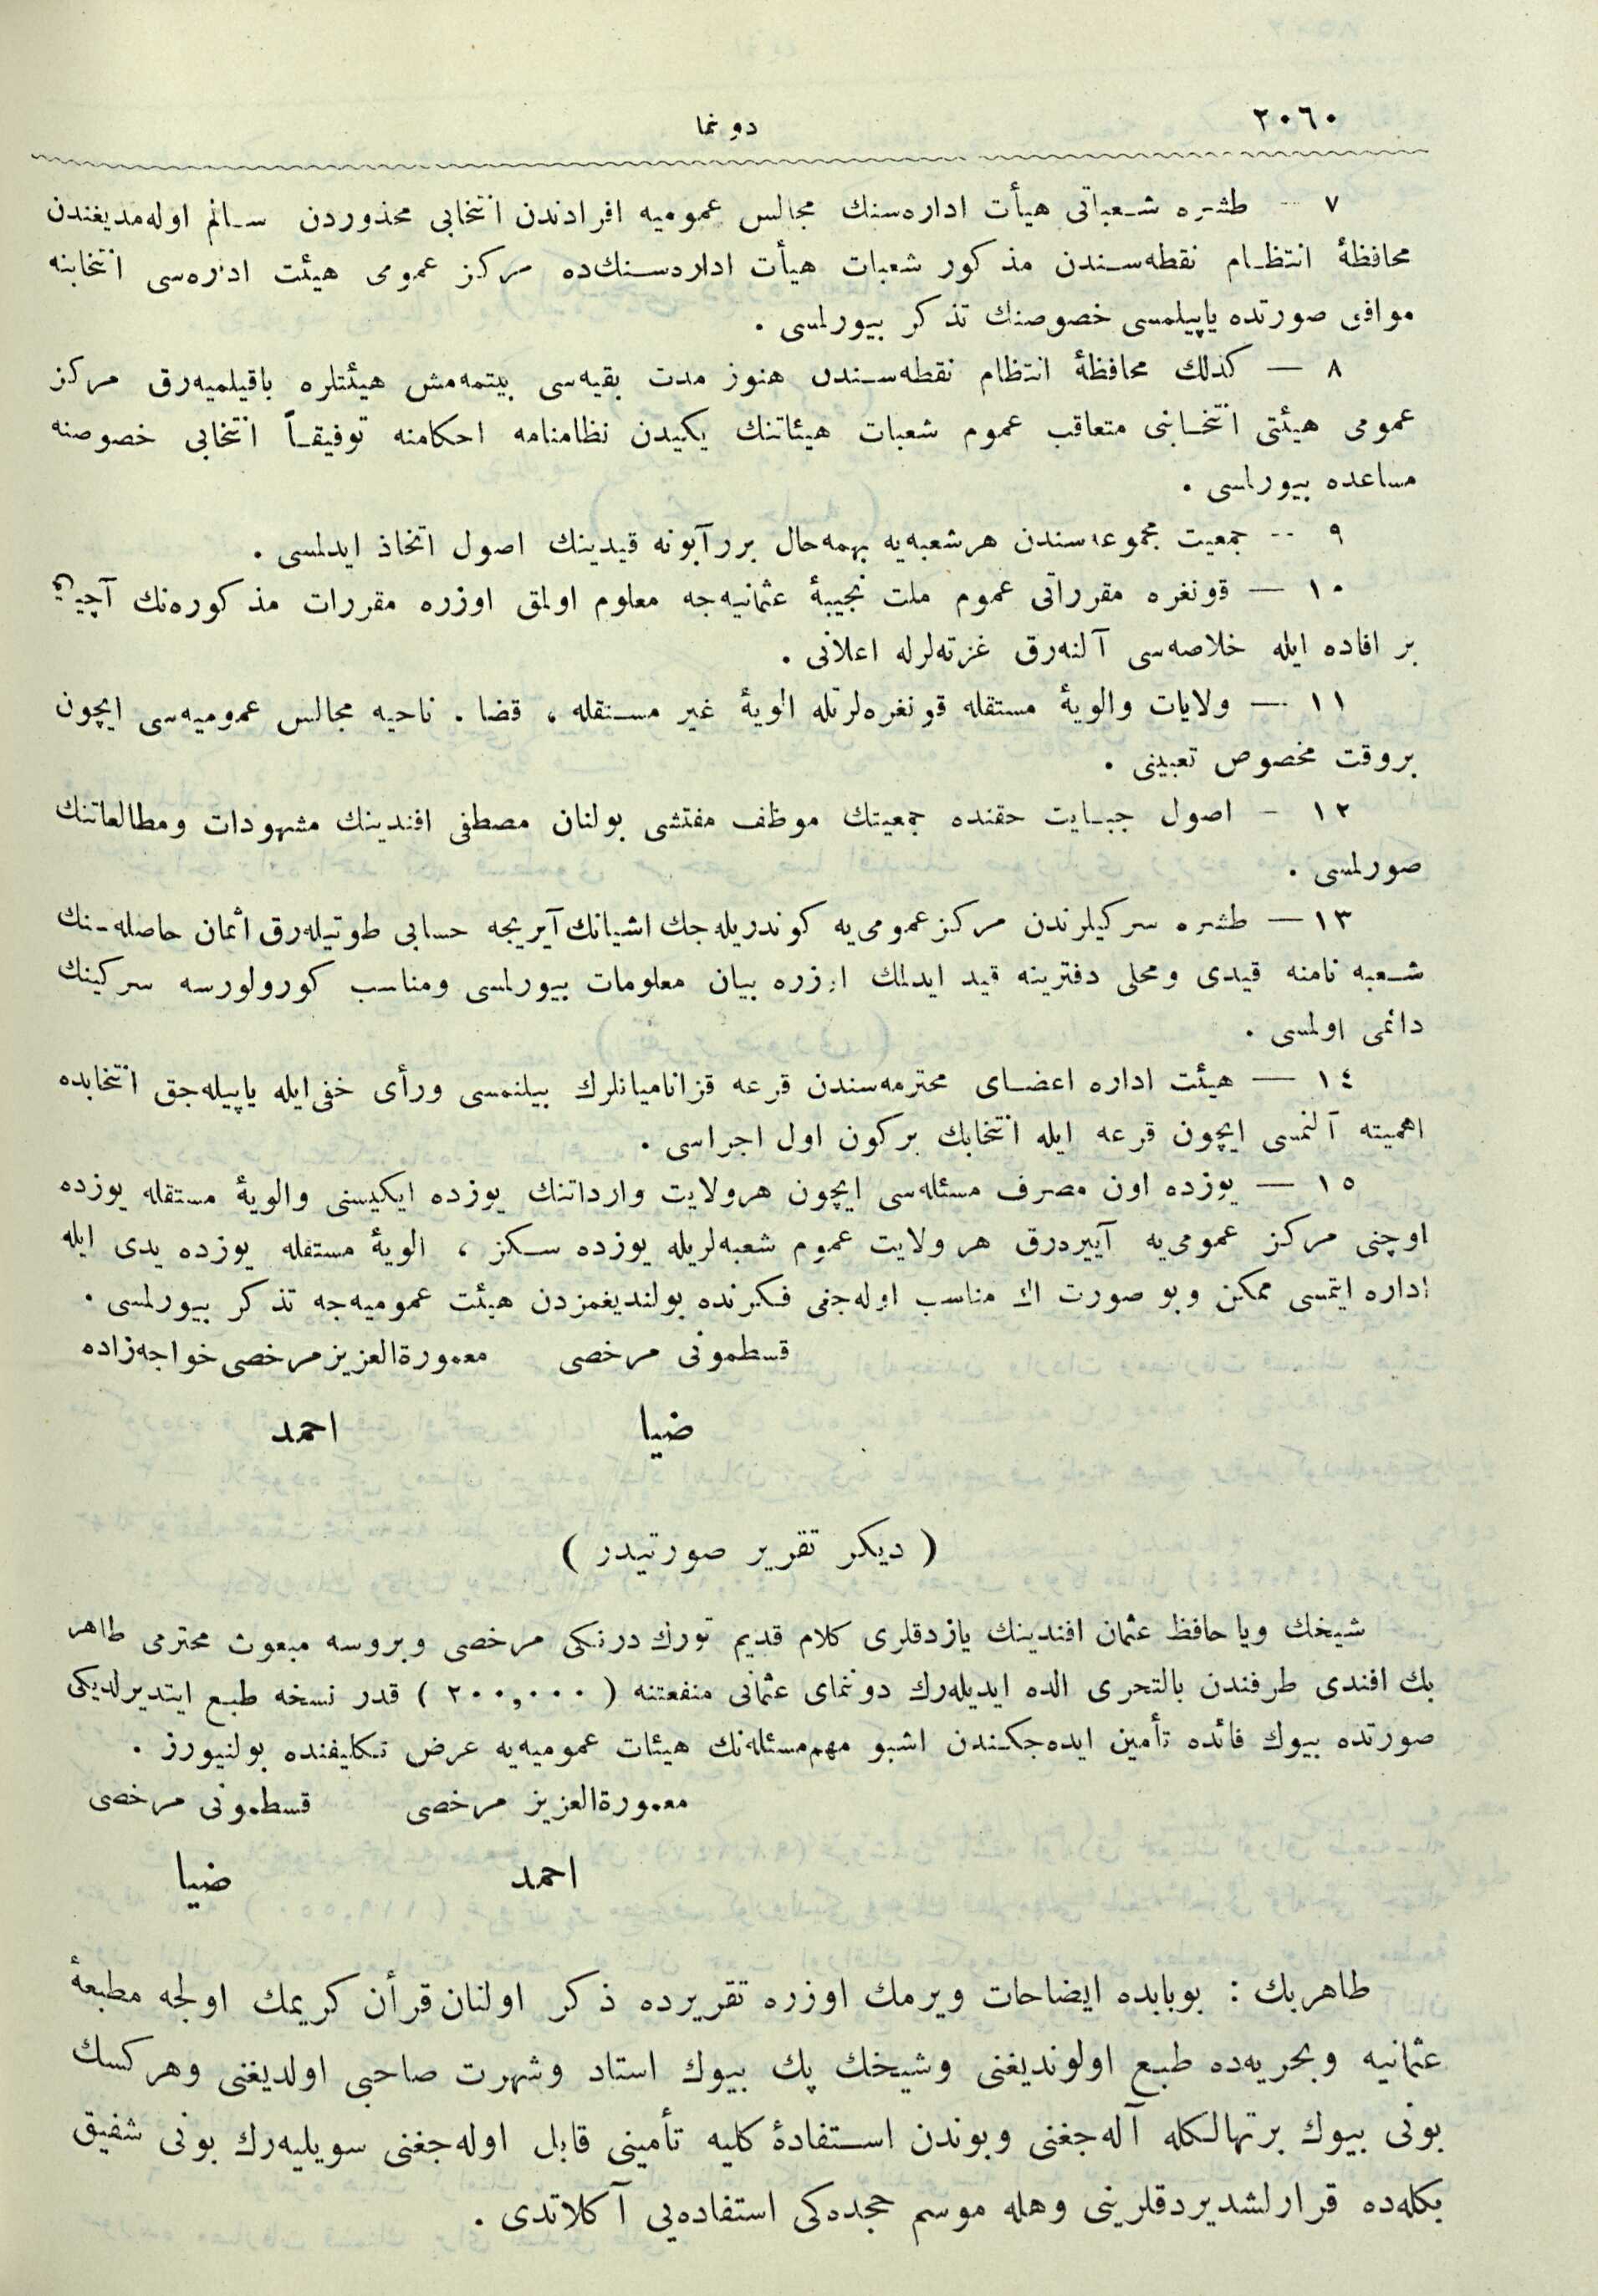 ٢٠٦٠
دوننما
٧ — طشره شعباتی هیأت اداره‌سنك مجالس عمومیه افرادندن انتخابی محذوردن سالم اوله‌مدیغندن
محافظهٔ انتظام نقطه‌سندن مذكور شعبات هیأت اداره‌سنك‌ده مركز عمومی هیئت اداره‌سی انتخابنه
موافق صورتده یاپیلمسی خصوصنك تذكر بیورلمسی .
٨ — كذلك محافظهٔ انتظام نقطه‌سندن هنوز مدت بقیه‌سی بیتمه‌مش هیئتلره باقیلمیه‌رق مركز
عمومی هیئتی انتخابنی متعاقب عموم شعبات هیئاتنك یكیدن نظامنامه احكامنه توفیقاً انتخابی خصوصنه
مساعده بیورلسی .
٩ — جمعیت مجموعه‌سندن هرشعبه‌یه بهمه‌حال بررآبونه قیدینك اصول اتخاذ ایدلمسی .
١٠ — قونغره مقرراتی عموم ملت نجیبهٔ عثمانیه‌جه معلوم اولمق اوزره مقررات مذكوره‌نك آچیق
بر افاده ایله خلاصه‌سی آلنه‌رق غزته‌لرله اعلانی .
١١ — ولایات والویهٔ مستقله قونغره‌لریله الویهٔ غیر مستقله ، قضا . ناحیه مجالس عمومیه‌سی ایچون
بروقت مخصوص تعیینی .
١٢ — اصول جبایت حقنده جمعیتك موظف مفتشی بولنان مصطفی افندینك مشهودات ومطالعاتنك
صورلمسی .
١٣ — طشره سركیلرندن مركزعمومی‌یه كوندریله‌جك اشیانك آیریجه حسابی طوتیله‌رق اثمان حاصله‌سنك
شعبه نامنه قیدی ومحلی دفترینه قید ایدلمك اوزره بیان معلومات بیورلمسی ومناسب كورولورسه سركینك
دائمی اولمسی .
١٤ — هیئت اداره اعضای محترمه‌سندن قرعه قزانامیانلرك بیلنمسی ورأی خفی‌ایله یاپیله‌جق انتخابده
اهمیته آلنمسی ایچون قرعه ایله انتخابك بركون اول اجراسی .
١٥ — یوزده اون مصرف مسئله‌سی ایچون هرولایت وارداتنك یوزده ایكیسنی والویهٔ مستقله یوزده
اوچنی مركز عمومی‌یه آییره‌رق هر ولایت عموم شعبه‌لریله یوزده سكز ، الویهٔ مستقله یوزده یدی ایله
اداره ایتمسی ممكن وبو صورت اك مناسب اوله‌جغی فكرنده بولندیغمزدن هیئت عمومیه‌جه تذكر بیورلمسی .
قسطمونی مرخصی معمورةالعزیزمرخصی‌خواجه‌زاده
ضیا احمد
( دیكر تقریر صورتیدر )
شیخك ویا حافظ عثمان افندینك یازدقلری كلام قدیم تورك درنكی مرخصی وبروسه مبعوث محترمی طاهر
بك افندی طرفندن بالتحری الده ایدیله‌رك دوننمای عثمانی منفعتنه ( ٢٠٠,٠٠٠ ) قدر نسخه طبع ایتدیرلدیكی
صورتده بیوك فائده تأمین ایده‌جكندن اشبو مهم‌مسئله‌نك هیئات عمومیه‌یه عرض تكلیفنده بولنیورز .
معمورةالعزیز مرخصی قسطمونی مرخصی
احمد ضیا
طاهربك : بوبابده ایضاحات ویرمك اوزره تقریرده ذكر اولنان‌قرأن كریمك اولجه مطبعهٔ
عثمانیه وبحریه‌ده طبع اولوندیغنی وشیخك پك بیوك استاد وشهرت صاحبی اولدیغنی وهركسك
بونی بیوك برتهالكله آله‌جغنی وبوندن استفادهٔ كلیه تأمینی قابل اوله‌جغنی سویلیه‌رك بونی شفیق
بكله‌ده قرارلشدیردقلرینی وهله موسم حجده‌كی استفاده‌یی آكلاتدی .